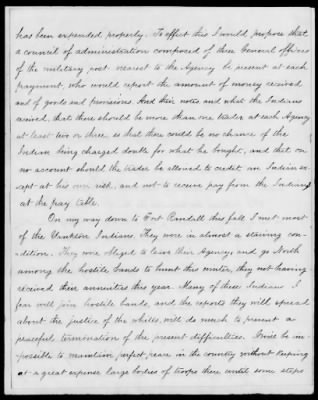 has been expended properly. To effect this I would propose that
a council of administration composed of three General officers
of the military post nearest to the Agency be present at each
payment, who would report the amount of money received
and if goods and provisions And their notes and what the Indians
received, that there should be more than one trader at each Agency
at least two or three, so that there could be no chance of the
Indian being charged double for what he bought, and that on
no account should the trader be allowed to credit an Indian ex-
cept at his own risk, and not to receive pay from the Indians
at the pay table.
On my way down to Fort Randall this fall I met most
of the Yankton Indians. They were in almost a starving con-
dition. They were obliged to leave their Agency, and go North
among the hostile bands to hunt this winter, they not having
received their annuities this year. Many of these Indians I
fear will join hostile bands, and the reports they will spread
about the justice of the whites, will do much to prevent a
peaceful termination of the present difficulties. It will be im-
possible to maintain perfect peace in the country without keeping
at a great expense large bodies of troops there until some steps